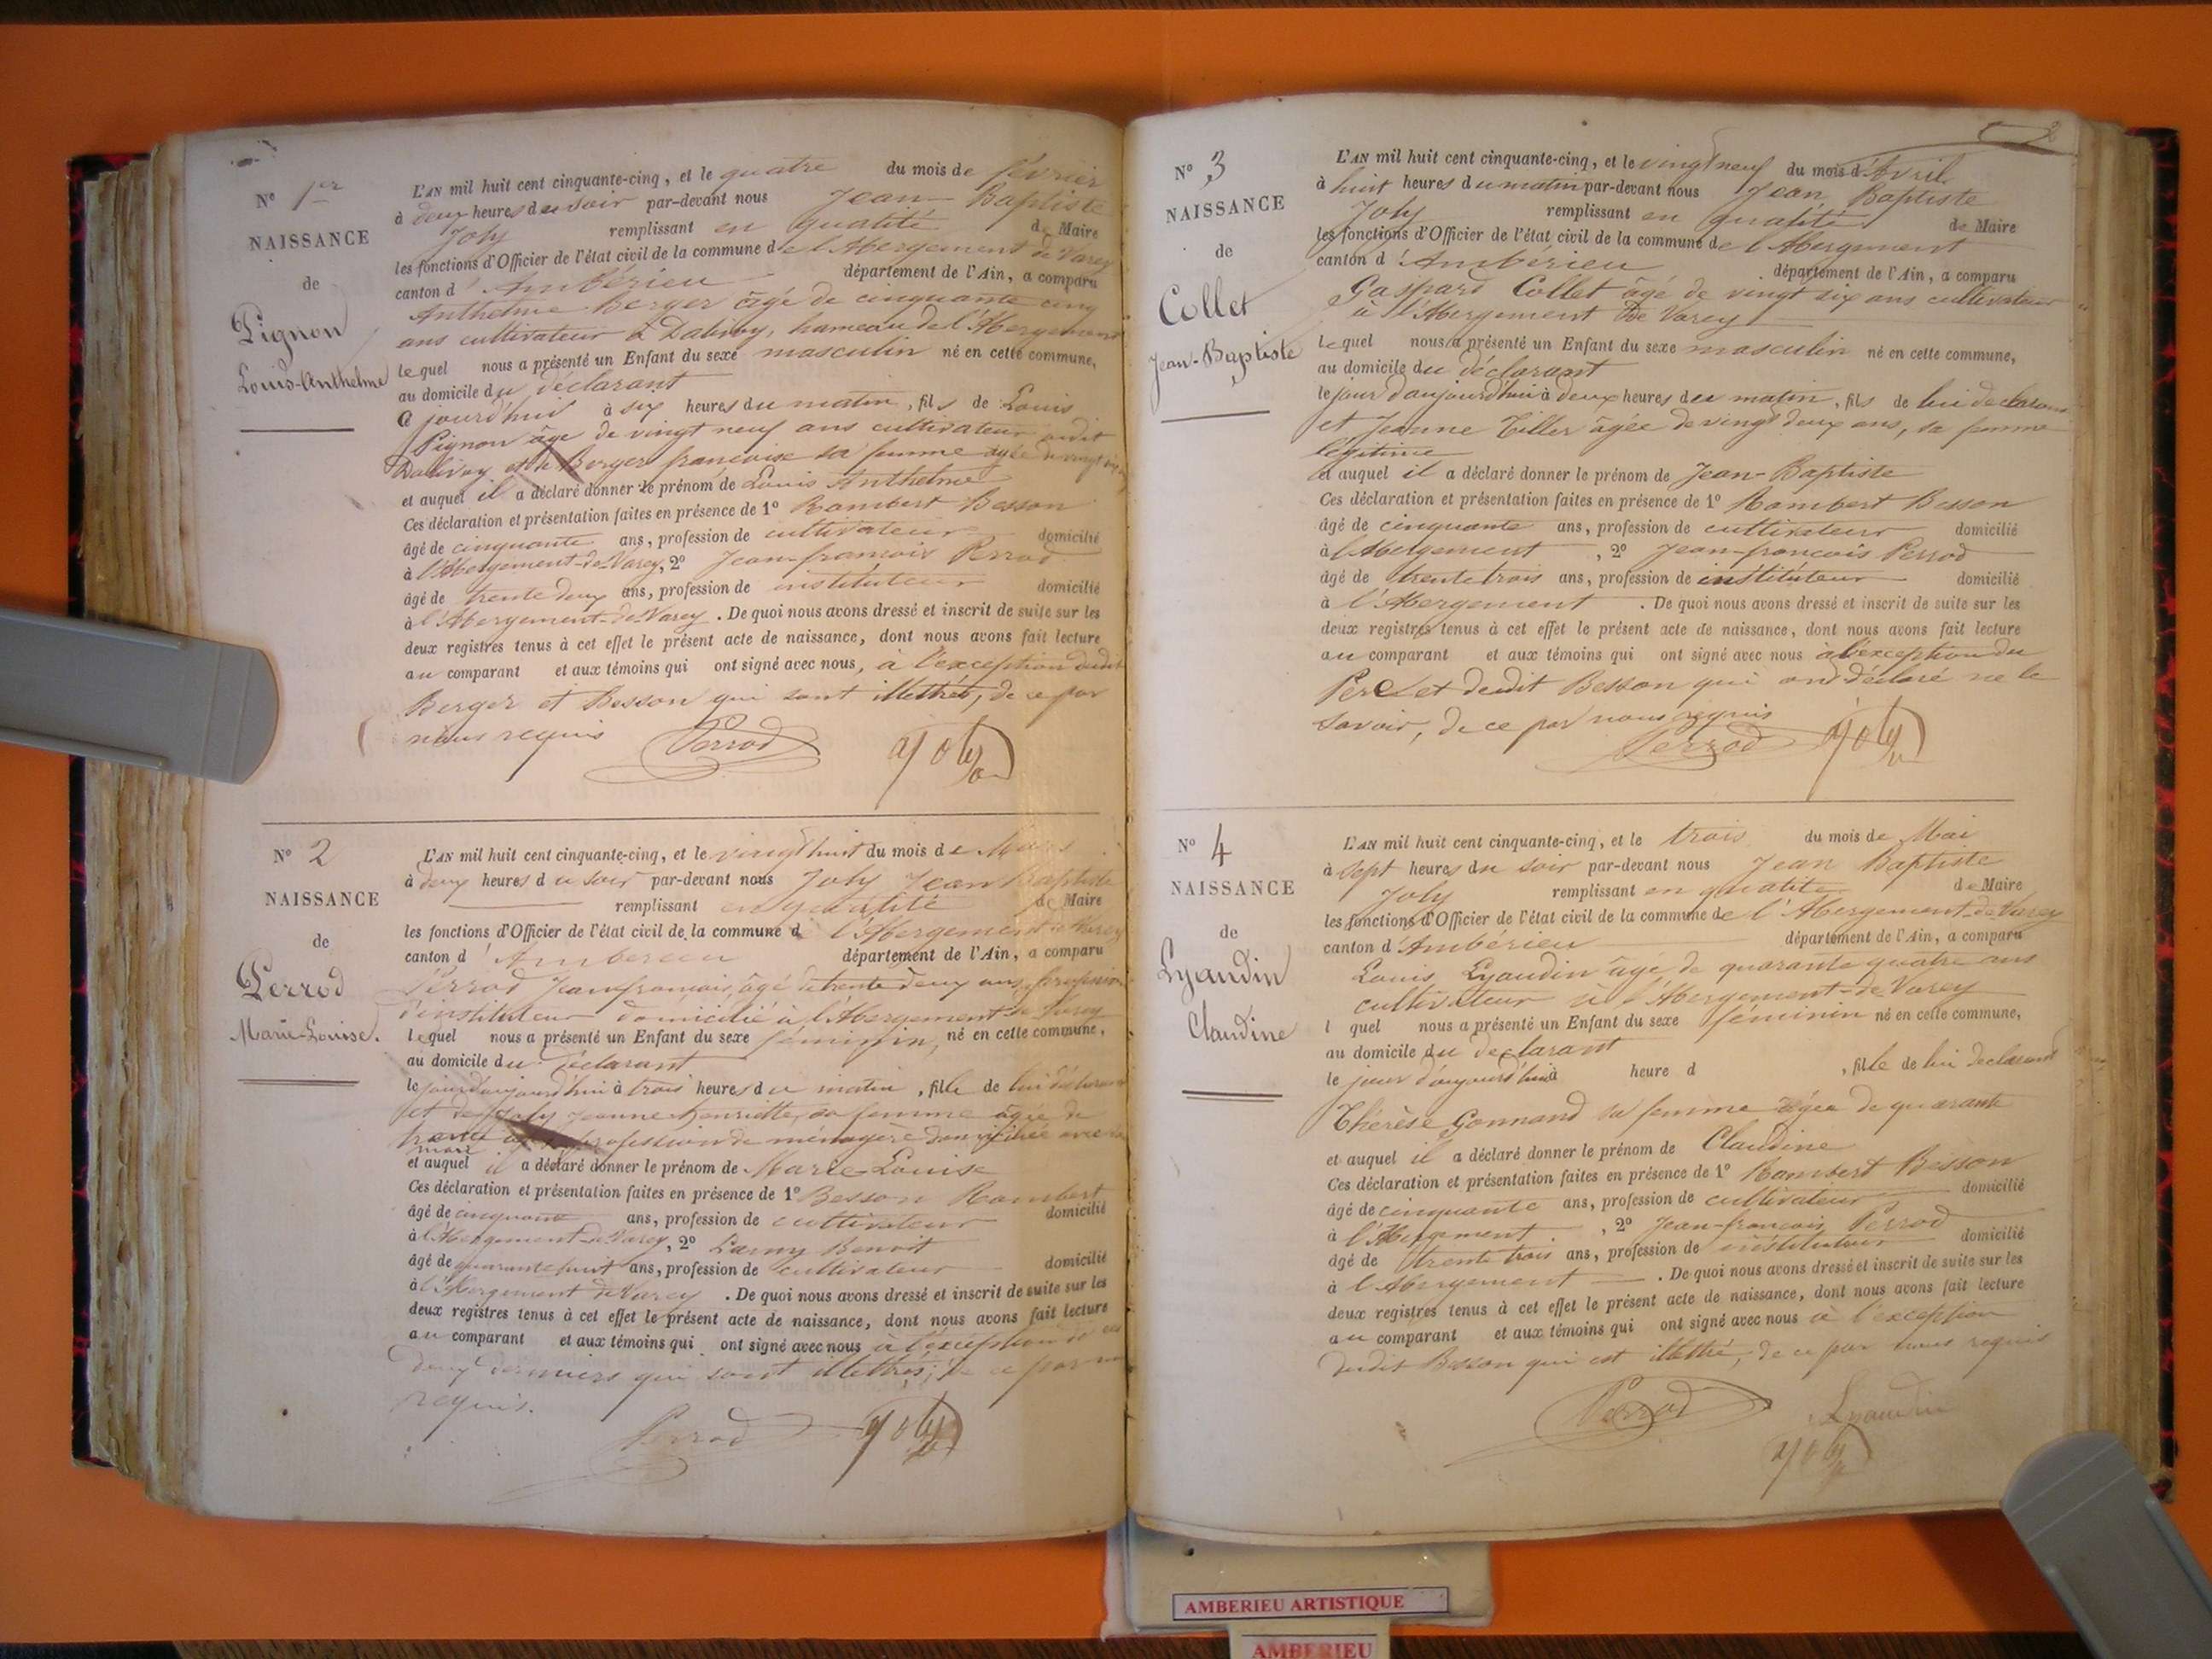 N° 1er
NAISSANCE
de
Pignon
Louis-Anthelme
L'AN mil huit cent cinquante-cinq, et le quatre du mois de février
à deux heures du soir par-devant nous Jean Baptiste
Joly remplissant en qualité de Maire
les fonctions d'Officier de l'état civil de la commune de l'Abergement de Varey
canton d'Ambérieu département de l'Ain, a comparu
Anthelme Berger âgé de cinquante cinq
ans cultivateur à Dalivoy, hameau de l'Abergement
lequel nous a présenté un Enfant du sexe masculin né en cette commune,
au domicile du déclarant
jourd'hui à six heures du matin, fils de Louis
Pignon âgé de vingt neuf ans cultivateur audit
Dalivoy et de Berger françoise sa femme agée de vingt
et auquel il a déclaré donner le prénom de Louis Anthelme
Ces déclaration et présentation faites en présence de 1° Rambert Besson
âgé de cinquante ans, profession de cultivateur domicilié
à l'Abergement-de-Varey, 2° Jean-françois Perrod
âgé de trente deux ans, profession de instituteur domicilié
à l'Abergement-de-Varey. De quoi nous avons dressé et inscrit de suite sur les
deux registres tenus à cet effet le présent acte de naissance, dont nous avons fait lecture
au comparant et aux témoins qui ont signé avec nous, à l'exception dudit
Berger et Besson qui sont illettrés, de ce par
nous requis
Perrod Joly
N° 2
NAISSANCE
de
Perrod
Marie-Louise.
L'AN mil huit cent cinquante-cinq, et le vingt huit du mois de Mars
à deux heures du soir par-devant nous Joly Jean Baptiste
remplissant en qualité de Maire
les fonctions d'Officier de l'état civil de la commune d l'Abergement de Varey
canton d'Ambérieu département de l'Ain, a comparu
Perrod Jean françois, âgé de trente deux ans, profession
d'instituteur domicilié à l'Abergement de Varey
lequel nous a présenté un Enfant du sexe féminin, né en cette commune,
au domicile du déclarant
le jour d'aujourd'hui à trois heures du matin, fille de lui déclarant
et de Joly Jeanne henriette, sa femme âgée de
trente profession de ménagère domiciliée avec son
mari
et auquel il a déclaré donner le prénom de Marie-Louise
Ces déclaration et présentation faites en présence de 1° Besson Rambert
âgé de cinquante ans, profession de cultivateur domicilié
à l'Abergement-de-Varey, 2° Larmy Benoit
âgé de quarante huit ans, profession de cultivateur domicilié
à l'Abergement de Varey. De quoi nous avons dressé et inscrit de suite sur les
deux registres tenus à cet effet le présent acte de naissance, dont nous avons fait lecture
au comparant et aux témoins qui ont signé avec nous à l'exception de ces
deux derniers qui sont illettrés, de ce par nous
requis.
Perrod Joly
2
N° 3
NAISSANCE
de
Collet
Jean-Baptiste
L'AN mil huit cent cinquante-cinq, et le vingt neuf du mois d'Avril
à huit heures du matin par-devant nous Jean Baptiste
Joly remplissant en qualité de Maire
les fonctions d'Officier de l'état civil de la commune de l'Abergement
canton d'Ambérieu département de l'Ain, a comparu
Gaspard Collet âgé de vingt six ans cultivateur
à l'Abergement de Varey
lequel nous a présenté un Enfant du sexe masculin né en cette commune,
au domicile du déclarant
le jour d'aujourd'hui à deux heures du matin, fils de lui déclarant
et Jeanne Tiller âgée de vingt deux ans, sa femme
légitime
et auquel il a déclaré donner le prénom de Jean-Baptiste
Ces déclaration et présentation faites en présence de 1° Rambert Besson
âgé de cinquante ans, profession de cultivateur domicilié
à l'Abergement, 2° Jean-francois Perrod
âgé de trente trois ans, profession de instituteur domicilié
à l'Abergement. De quoi nous avons dressé et inscrit de suite sur les
deux registres tenus à cet effet le présent acte de naissance, dont nous avons fait lecture
au comparant et aux témoins qui ont signé avec nous à l'exception du
Père et dudit Besson qui ont déclaré ne le
savoir, de ce par nous requis
Perrod Joly
N° 4
NAISSANCE
de
Lyaudin
Claudine
L'AN mil huit cent cinquante-cinq, et le trois du mois de Mai
à sept heures du soir par-devant nous Jean Baptiste
Joly remplissant en qualité de Maire
les fonctions d'Officier de l'état civil de la commune de l'Abergement-de-Varey
canton d'Ambérieu département de l'Ain, a comparu
Louis Lyaudin âgé de quarante quatre ans
cultivateur à l'Abergement-de-Varey
l quel nous a présenté un Enfant du sexe féminin né en cette commune,
au domicile du déclarant
le jour d'aujourd'hui à heure d , fille de lui déclarant
Thérèse Gonnand sa femme âgée de quarante
et auquel il a déclaré donner le prénom de Claudine
Ces déclaration et présentation faites en présence de 1° Rambert Besson
âgé de cinquante ans, profession de cultivateur domicilié
à l'Abergement, 2° Jean-francois Perrod
âgé de trente trois ans, profession de instituteur domicilié
à l'Abergement. De quoi nous avons dressé et inscrit de suite sur les
deux registres tenus à cet effet le présent acte de naissance, dont nous avons fait lecture
au comparant et aux témoins qui ont signé avec nous à l'exception
dudit Besson qui est illettré, de ce par nous requis
Perrod Lyaudin
Joly
AMBERIEU ARTISTIQUE
AMBERIEU